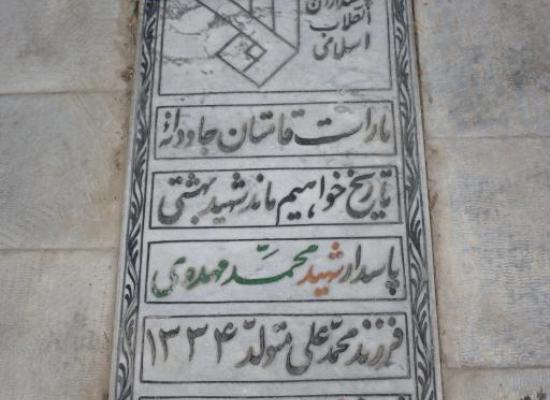 پاسداران
انقلاب
اسلامی
ما راست قامتان جاودانهٔ
تاریخ خواهیم ماند شهید بهشتی
پاسدار شهید محمّد مهدوی
فرزند محمّد علی متولدّ ۱۳۳۴